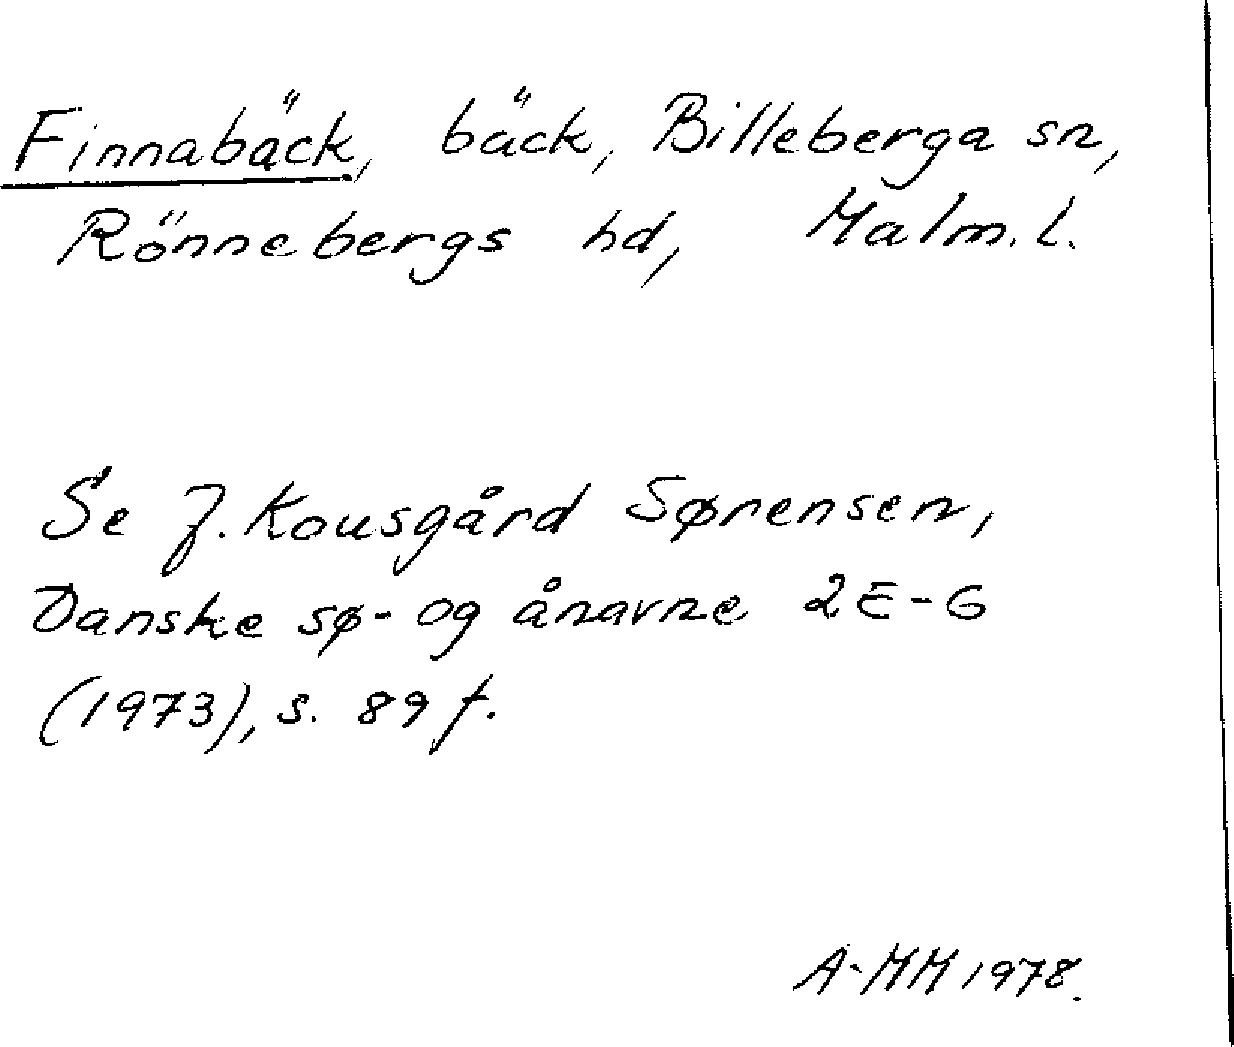 Finnabäck, bäck, Billeberga sn,
Rönnebergs hd, Malm. l.
Se J. Kousgård Sørensen,
Danske sø- og ånavne 2 E-G
(1973), s. 89 f.
A-MM 1978.